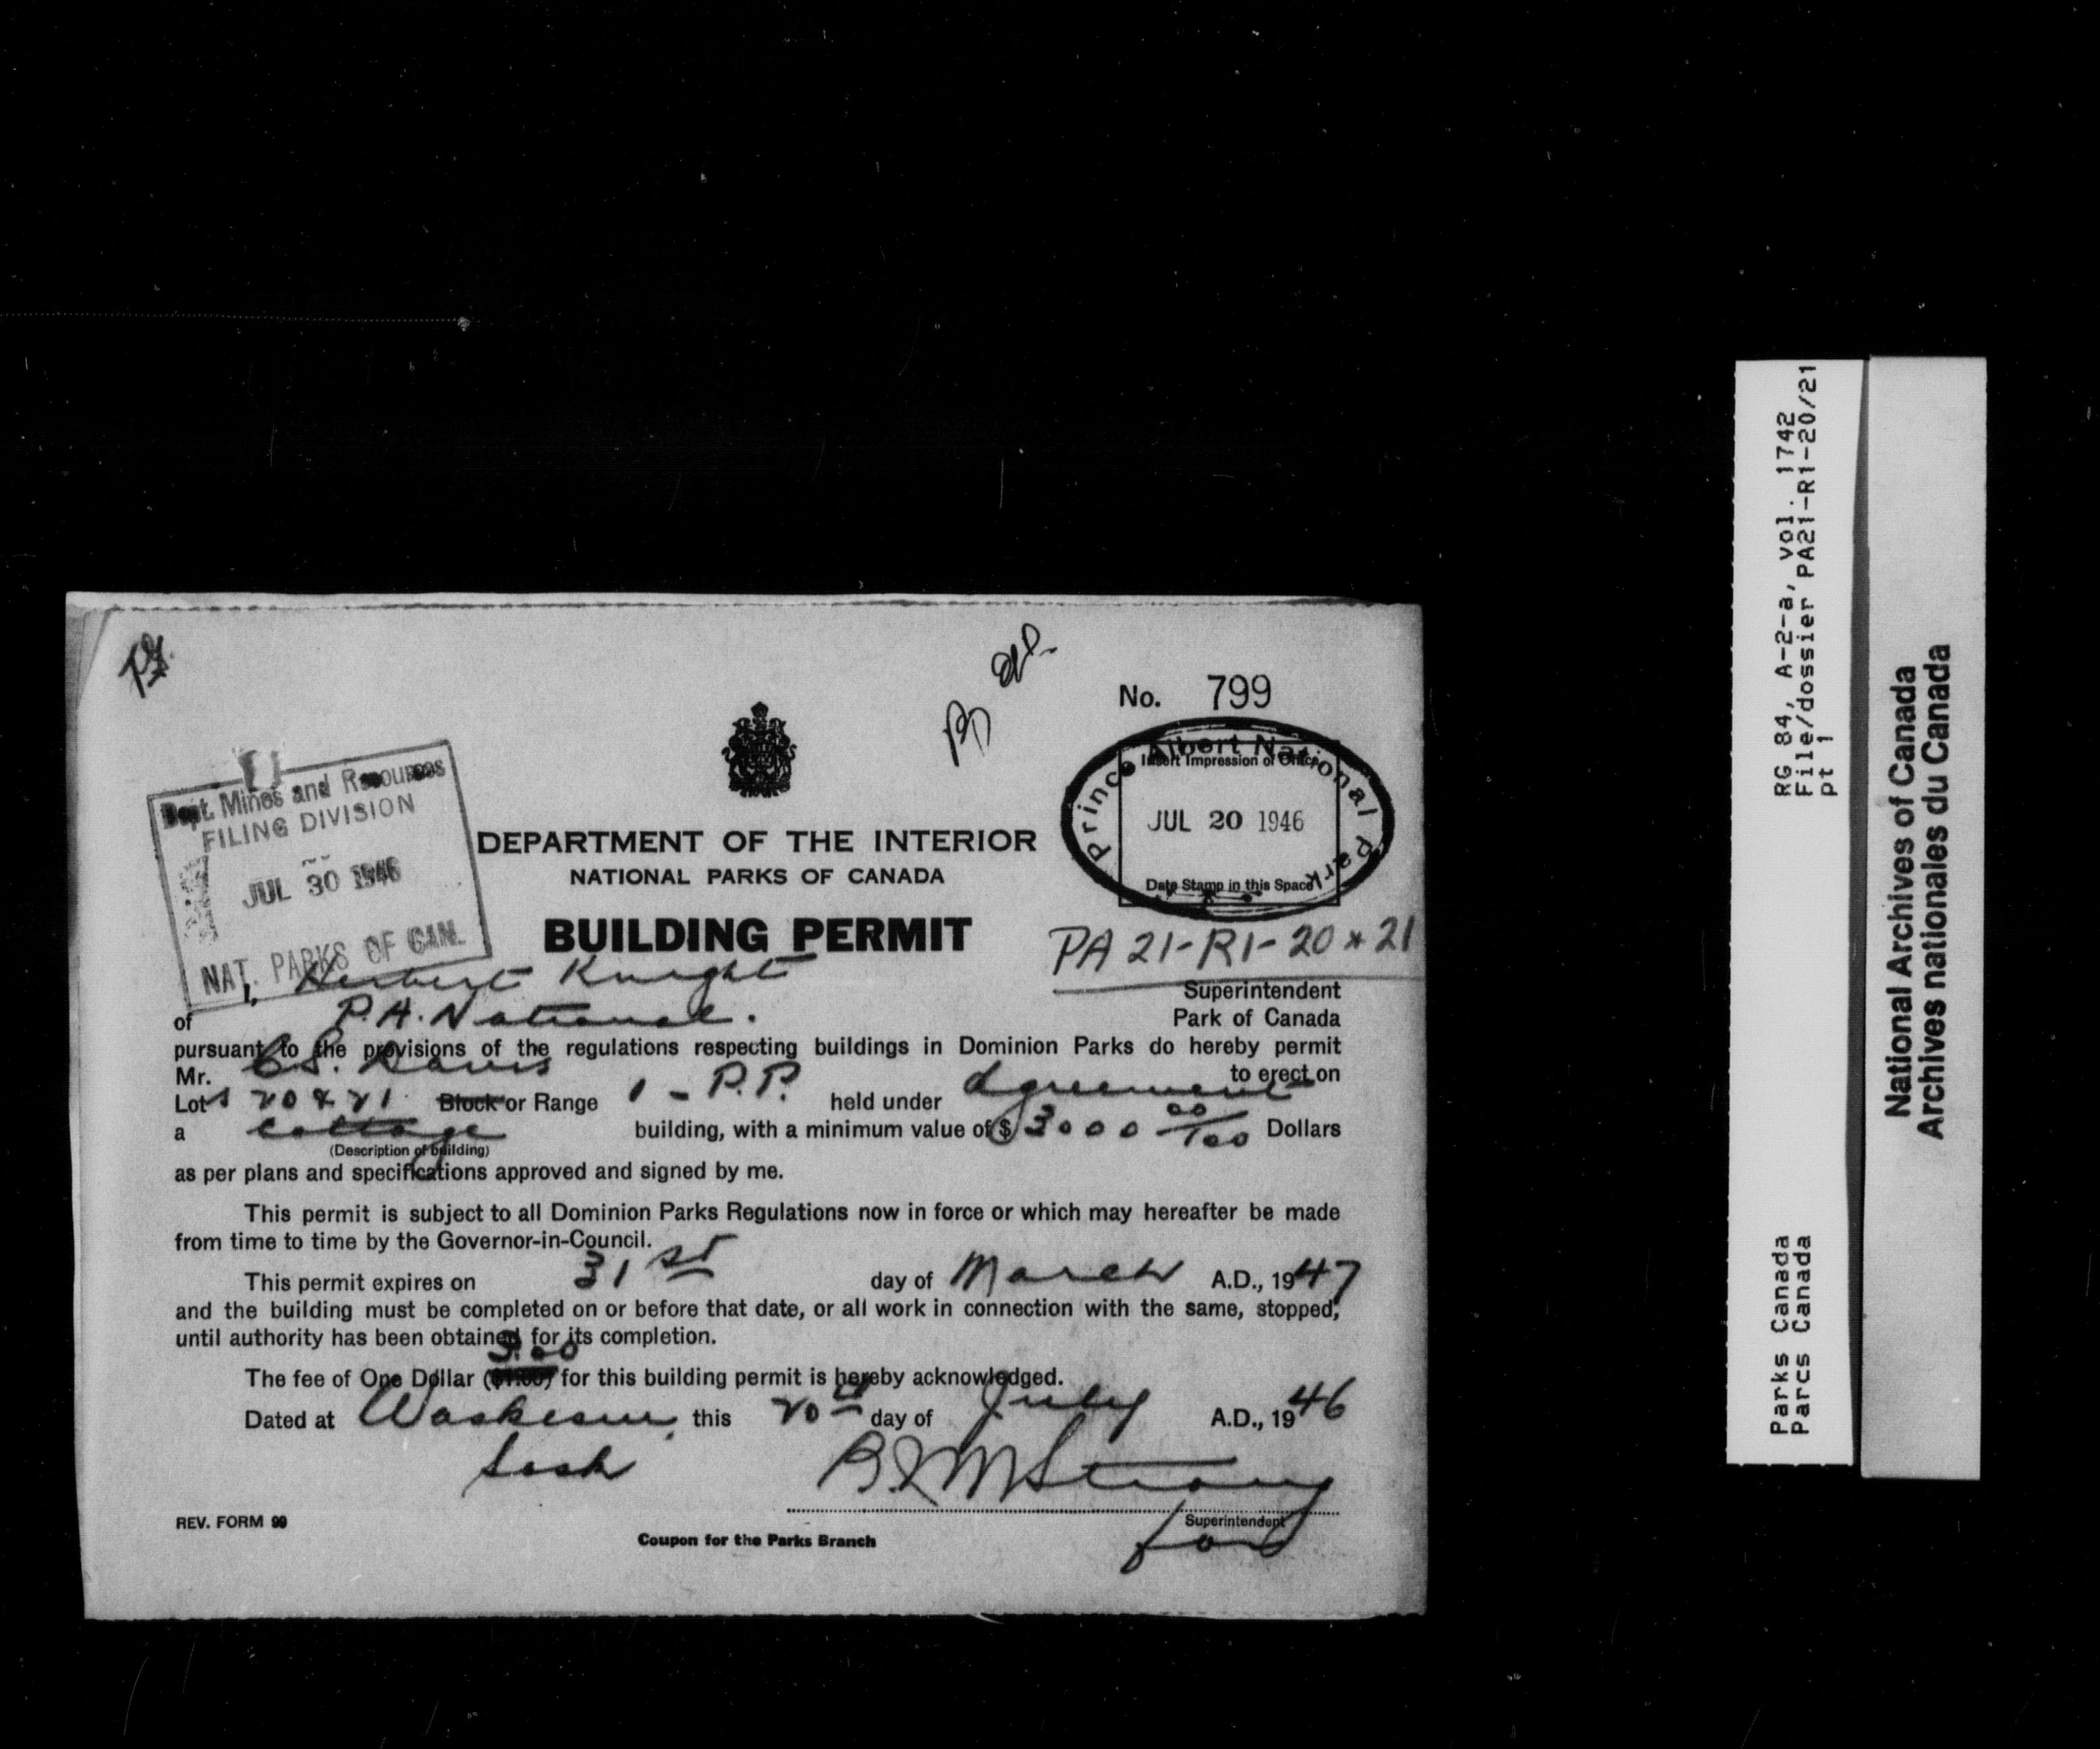 No. 799
Prince Albert National Park
Insert Impression of Office
JUL 20 1946
Date Stamp in this Space
Dept. Mines and Resources
FILING DIVISION
JUL 30 1946
NAT. PARKS OF CAN.
DEPARTMENT OF THE INTERIOR
NATIONAL PARKS OF CANADA
BUILDING PERMIT
PA 21-R1-20 & 21
I, Herbert Knight Superintendent
of P.A. National. Park of Canada
pursuant to the provisions of the regulations respecting buildings in Dominion Parks do hereby permit
Mr. C.S. Davis to erect on
Lots 20 & 21 Block or Range 1 - P.P. held under Agreement
a cottage building, with a minimum value of $ 3000 00/100 Dollars
(Description of building)
as per plans and specifications approved and signed by me.
This permit is subject to all Dominion Parks Regulations now in force or which may hereafter be made
from time to time by the Governor-in-Council.
This permit expires on 31st day of March A.D., 1947
and the building must be completed on or before that date, or all work in connection with the same, stopped,
until authority has been obtained for its completion.
3.00
The fee of One Dollar ($1.00) for this building permit is hereby acknowledged.
Dated at Waskesiu, this 20th day of July A.D., 1946
Sask
Superintendent
for
REV. FORM 99
Coupon for the Parks Branch
RG 84, A-2-a, vol. 1742
File/dossier PA21-R1-20/21
pt 1
Parks Canada
Parcs Canada
National Archives of Canada
Archives nationales du Canada